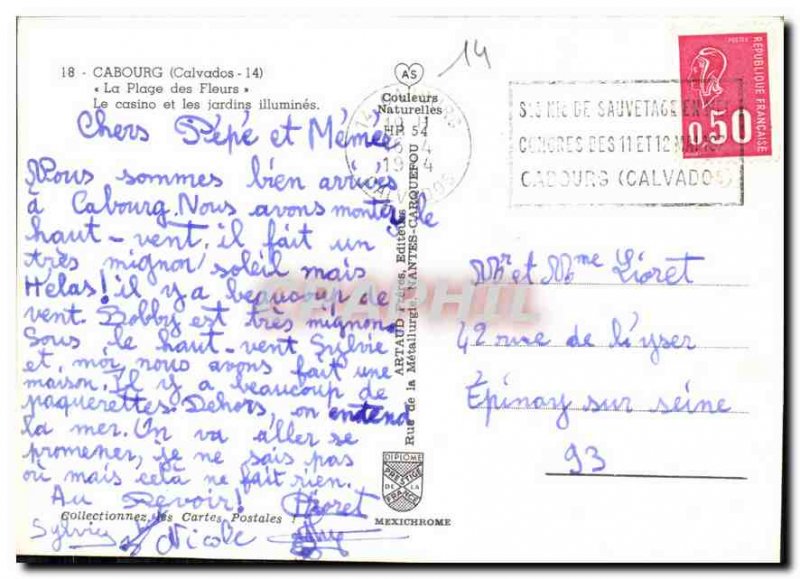 18 - CABOURG (Calvados - 14)
« La Plage des Fleurs »
Le casino et les jardins illuminés.
Chers Pépé et Mémée
Nous sommes bien arrivés
à Cabourg. Nous avons monter le
haut-vent. il fait un
très mignon soleil mais
Hélas! il y a beaucoup de
vent. Bobby est très mignon.
Sous le haut-vent Sylvie
et, moi, nous avons fait une
maison. Il y a beaucoup de
paquerettes. Dehors, on entend
la mer. On va aller se
promener, je ne sais pas
où mais cela ne fait rien.
Au Revoir!
Collectionnez les Cartes Postales !
Sylvie
Nicole
14
AS
Couleurs
Naturelles
HP 54
ARTAUD Frères, Editeurs
Rue de la Métallurgie, NANTES-CARQUEFOU
DIPLOME
PRESTIGE
DE LA
FRANCE
MEXICHROME
CALVADOS
DE SAUVETAGE EN
CONGRES DES 11 ET 12 MAI
CABOURG (CALVADOS)
POSTES
REPUBLIQUE FRANÇAISE
0,50
Mr et Mme Lioret
42 rue de l'yser
Épinay sur seine
93